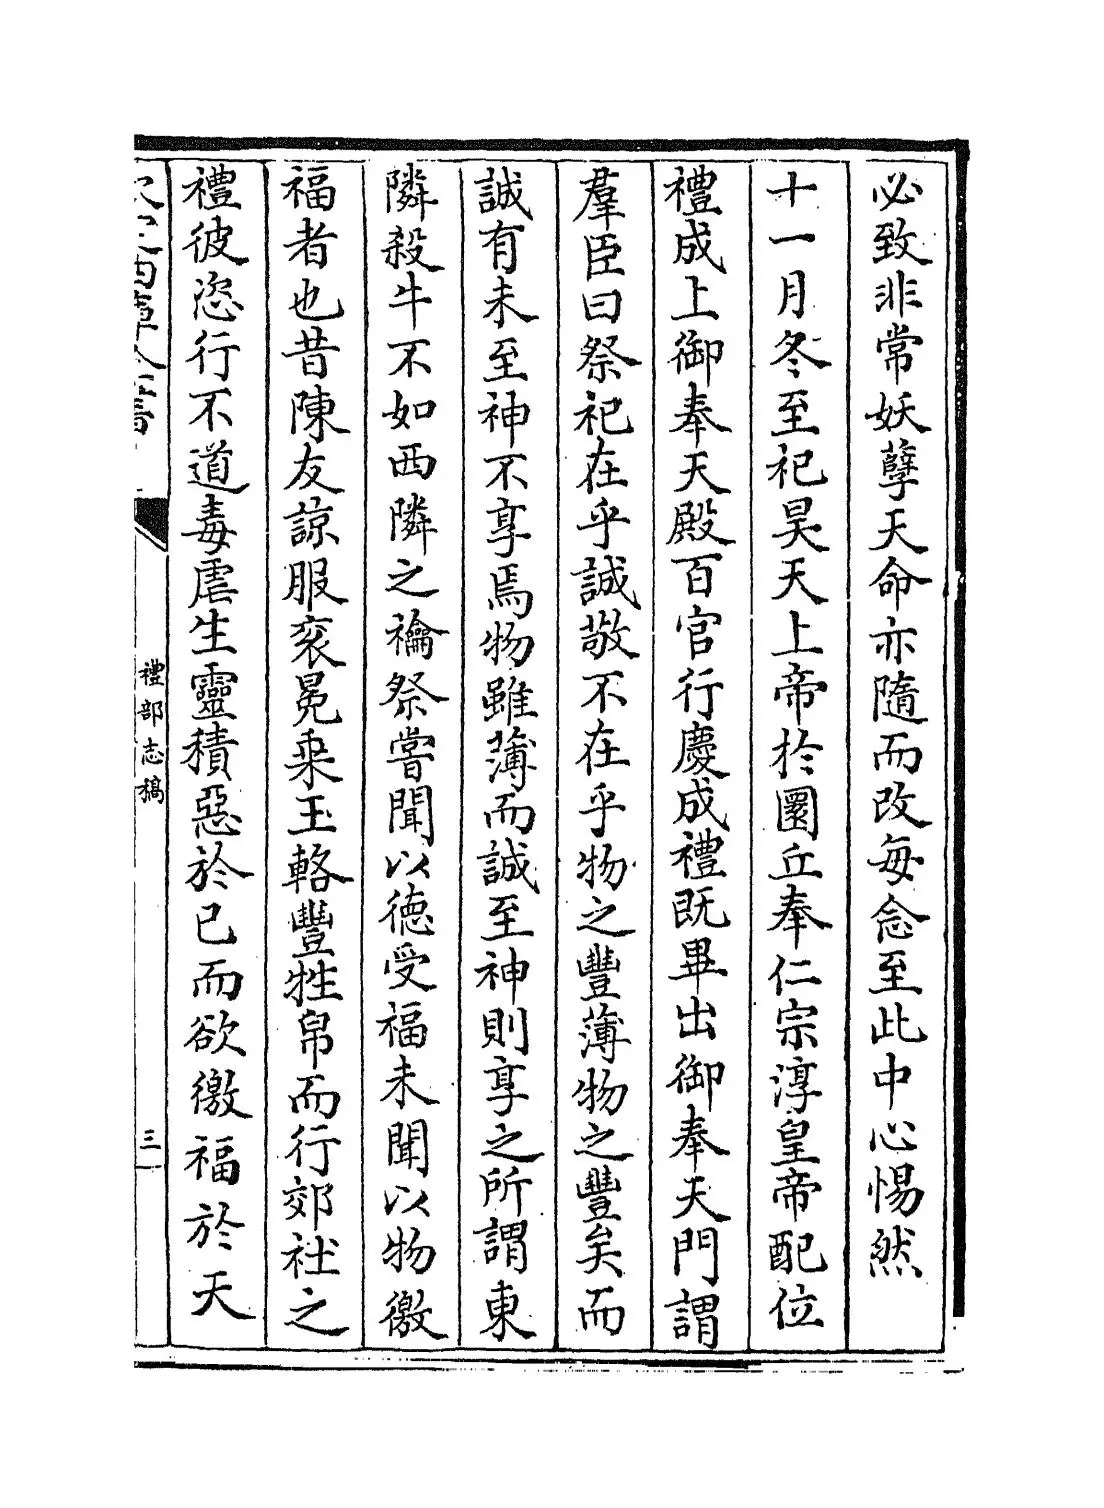 必致非常妖孽天命亦隨而改每念至此中心惕然
十一月冬至祀昊天上帝於圜丘奉仁宗淳皇帝配位
禮成上御奉天殿百官行慶成禮既畢出御奉天門謂
羣臣曰祭祀在乎誠敬不在乎物之豐薄物之豐矣而
誠有未至神不享焉物雖薄而誠至神則享之所謂東
隣殺牛不如西隣之禴祭嘗聞以德受福未聞以物徼
福者也昔陳友諒服衮冕乘玉輅豐牲帛而行郊社之
禮彼恣行不道毒虐生靈積惡於已而欲徼福於天
欽定四庫全書
禮部志稿
三